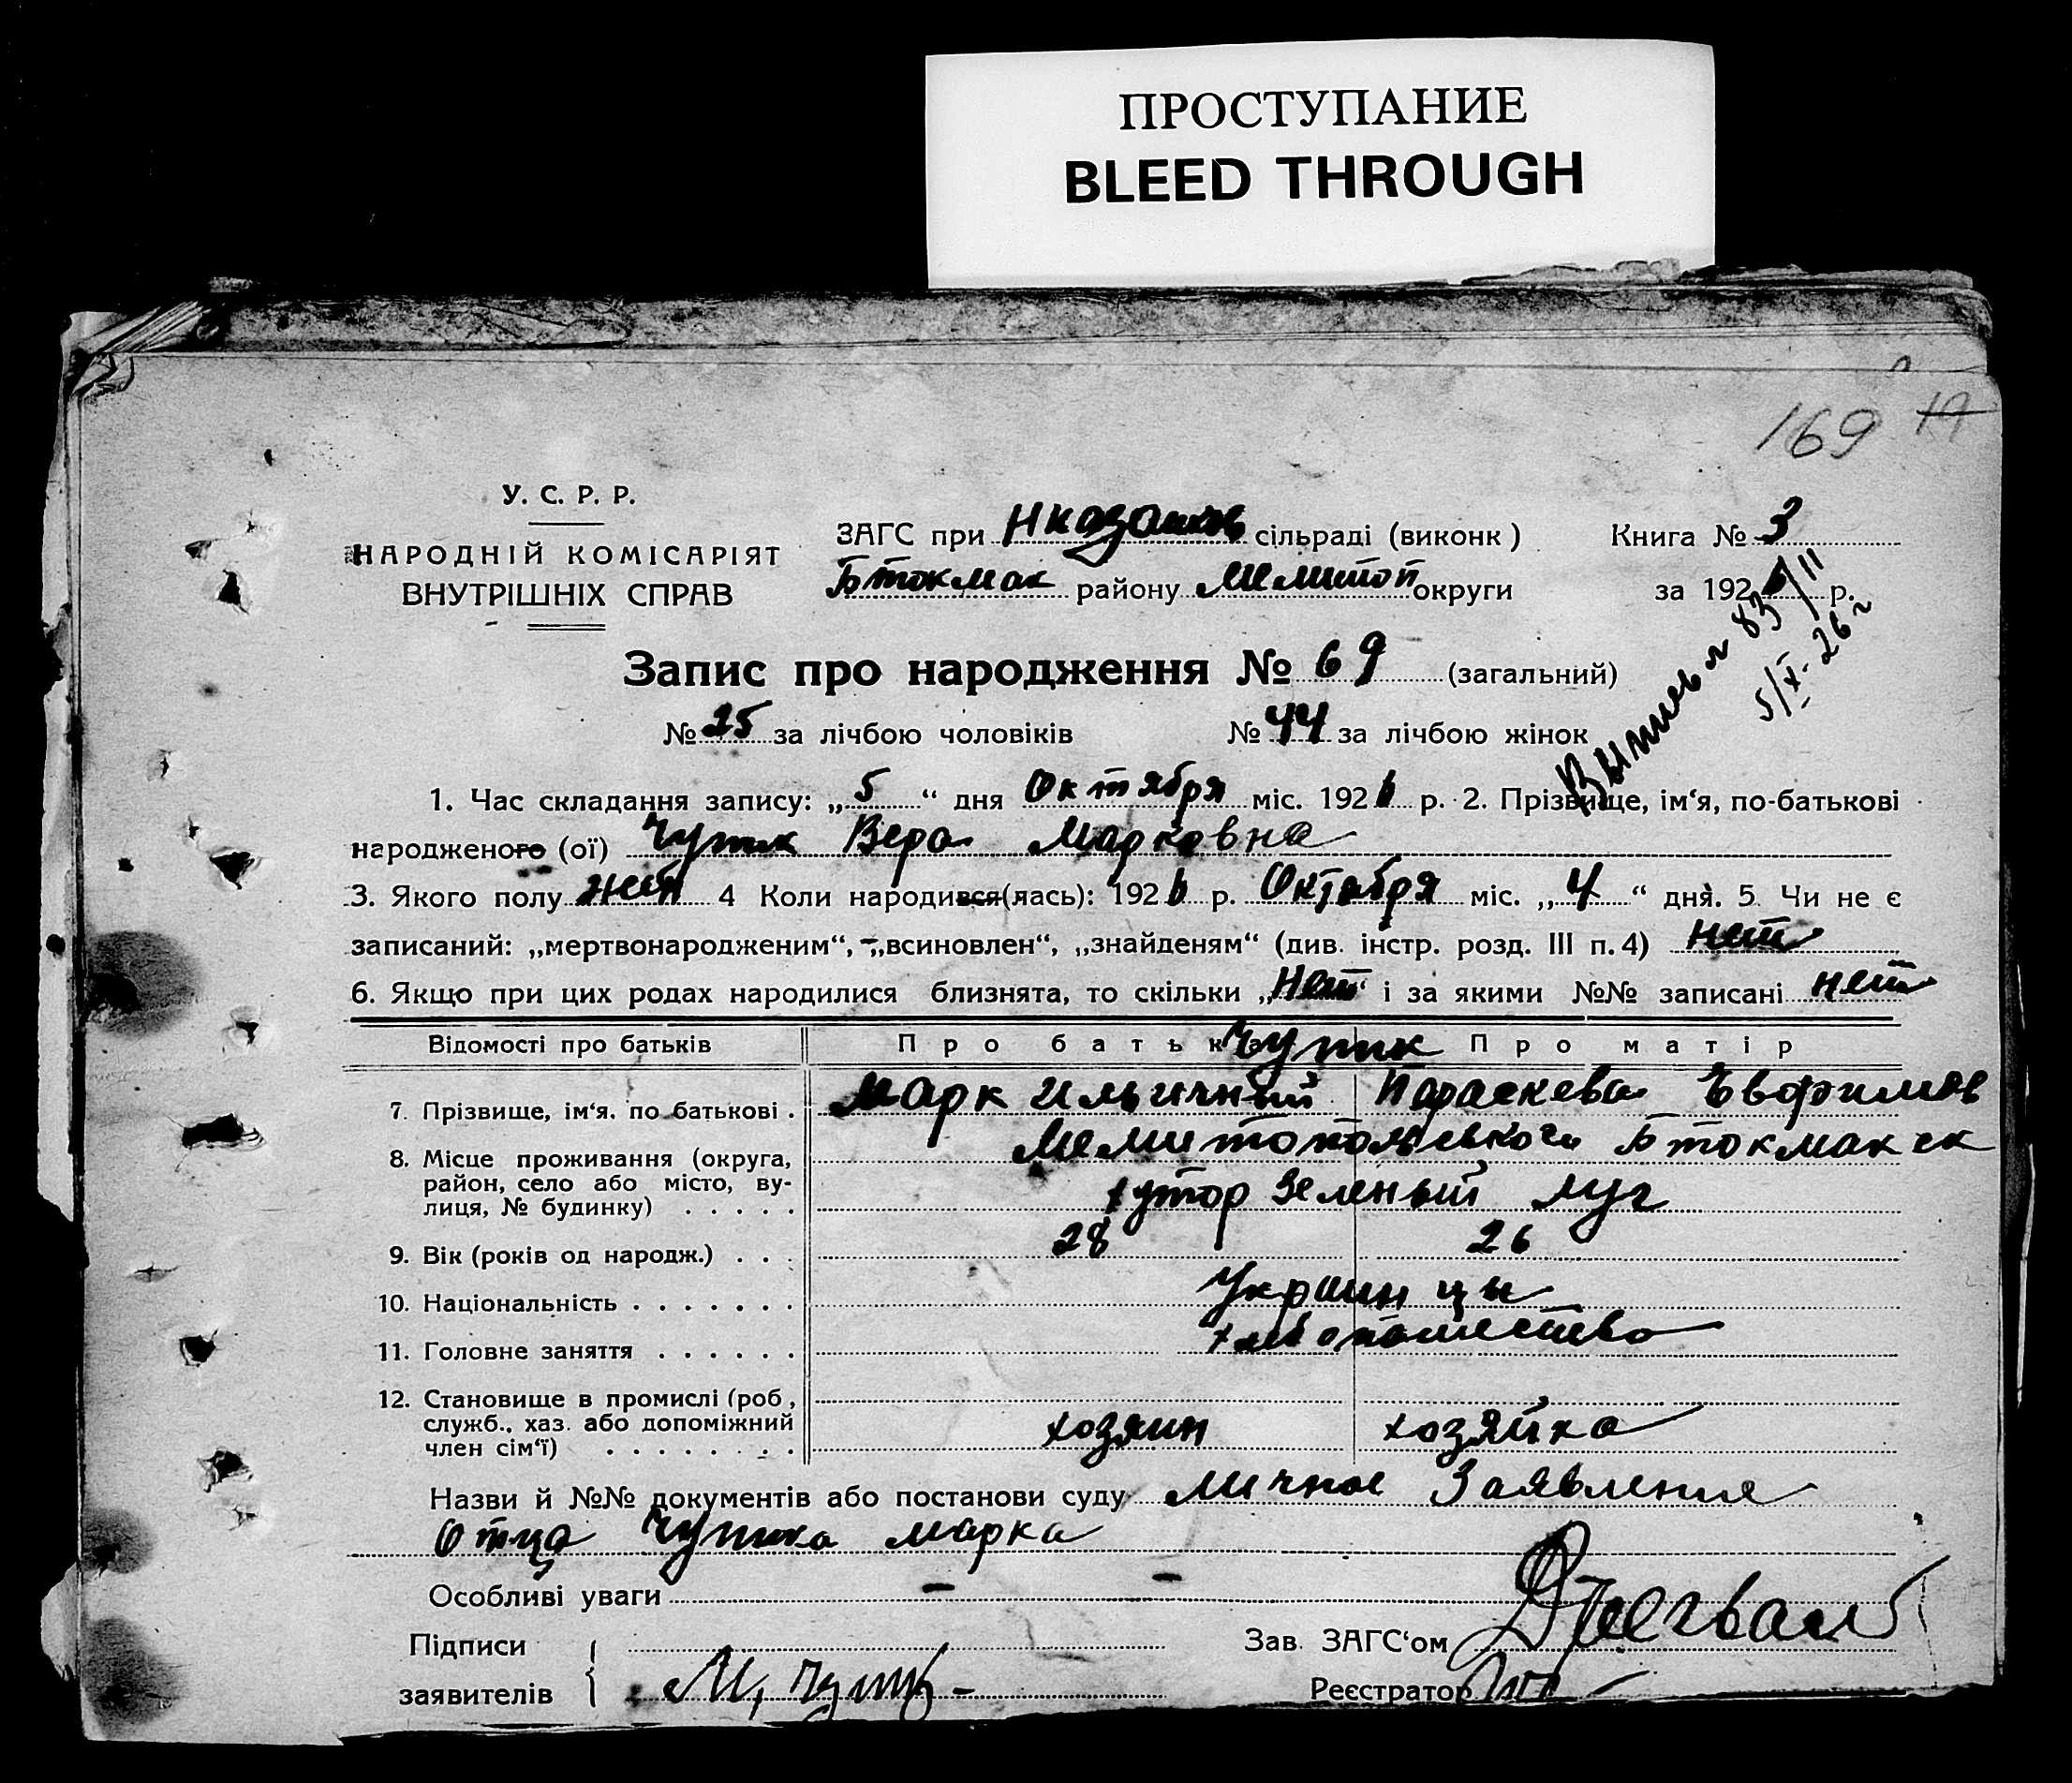 ПРОСТУПАНИЕ
BLEED THROUGH
169 19
У. С. Р. Р.
НАРОДНІЙ КОМІСАРІЯТ
ВНУТРІШНІХ СПРАВ
ЗАГС при сільраді (виконк)
Бтокмак району Мелитоп округи
Книга № 3
за 1926 р.
83/11
5/X-26 г
Запис про народження № 69 (загальний)
№ 25 за лічбою чоловіків № 44 за лічбою жінок
1. Час складання запису: „5“ дня Октября міс. 1926 р. 2. Прізвище, ім‘я, по-батькові
народженого (ої) Чупик Вера Марковна
3. Якого полу жен 4 Коли народився(лась): 1926 р. Октября міс. „4“ дня. 5. Чи не є
записаний: „мертвонародженим“, „всиновлен“, „знайденям“ (див. інстр. розд. III п. 4) нет
6. Якщо при цих родах народилися близнята, то скільки „нет“ і за якими №№ записані нет
Відомості про батьків Про батька Чупик Про матір
7. Прізвище, ім‘я, по батькові . Марк Ильич Параскева Евфимов
8. Місце проживання (округа, Бтокмак
район, село або місто, ву- хутор Зеленый луг
лиця, № будинку) . . . . .
9. Вік (років од народж.) . . . 28 26
10. Національність . . . . . . . Украинцы
11. Головне заняття . . . . . . хлебопашество
12. Становище в промислі (роб,
служб., хаз. або допоміжний хозяин хозяйка
член сім‘ї) . . . . . . . .
Назви й №№ документів або постанови суду личное Заявление
Отца Чупика Марка
Особливі уваги - -
Підписи
заявителів М. Чупик
Зав. ЗАГС‘ом
Реєстратор